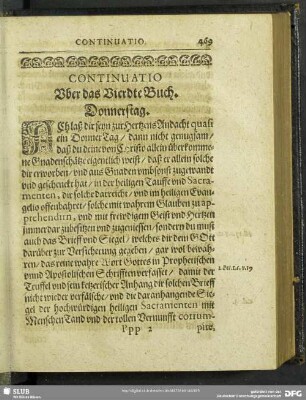 CONTINUATIO. 469
CONTINUATIO
Vber das Vierdte Buch.
Donnerstag.
ACh laß dir seyn zur Hertzens Andacht quasi
ein Donner Tag / dann nicht genugsam /
daß du deine von Christo allein überkomme-
ne Gnadenschätze eigentlich weist / daß er allein solche
dir erworben / und aus Gnaden umbsonst zugewandt
und geschencket hat / in der heiligen Tauffe und Sacra-
menten, dir solche darreicht / und im heiligen Evan-
gelio offenbahret / solche mit wahrem Glauben zu ap-
prehendirn, und mit freudigem Geist und Hertzen
immerdar zubesitzen und zugeniessen / sondern du must
auch das Brieff und Siegel / welches dir dein GOtt
darüber zur Versicherung gegeben / gar wol bewah-
ren / das reine wahre Wort Gottes in Prophetischen
unnd Apostolischen Schrifften verfasset / damit der
Teuffel und sein ketzerischer Anhang dir solchen Brieff
nicht wieder verfälsche / und die daranhangende Sie-
gel der hochwürdigen heiligen Sacramenten mit
Menschen Tand und der tollen Vernunfft corrum-
Ppp 2 pire,
SLUB
DFG